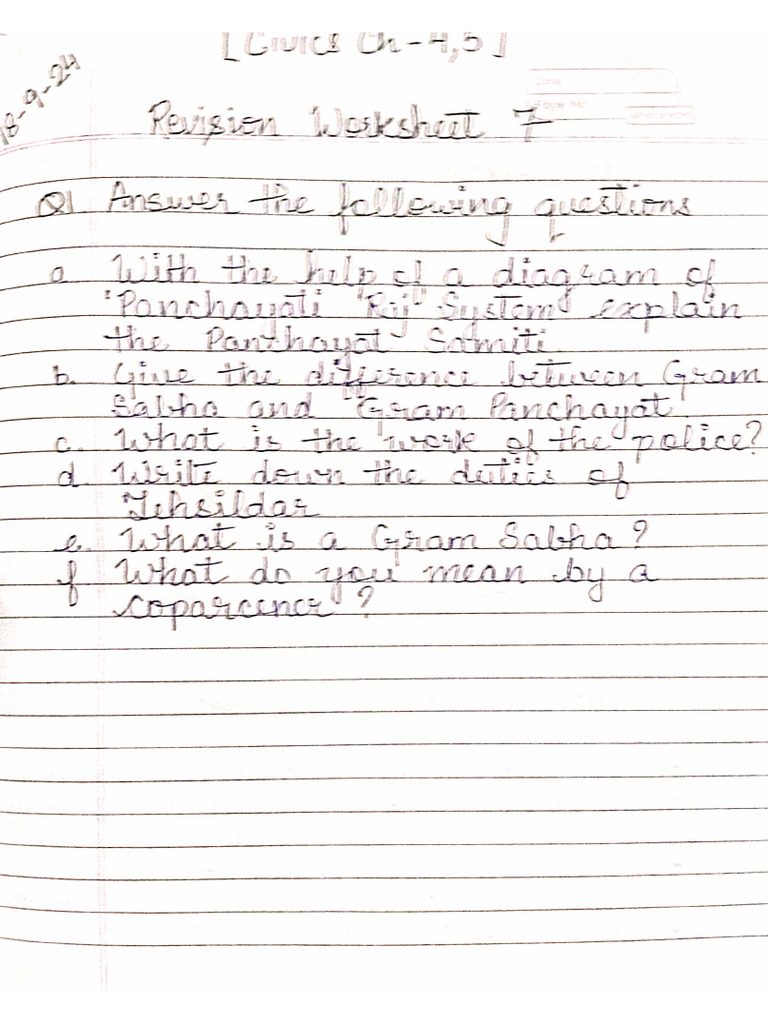 [Civics Ch-4,5]
18-9-24
Revision Worksheet 7
Q1 Answer the following questions
a With the help of a diagram of
"Panchayati "Raj" System explain
the Panchayat Samiti
b. Give the difference between Gram
Sabha and Gram Panchayat.
c. What is the work of the police?
d. Write down the duties of
Tehsildar
e. What is a Gram Sabha?
f What do you mean by a
coparcener?